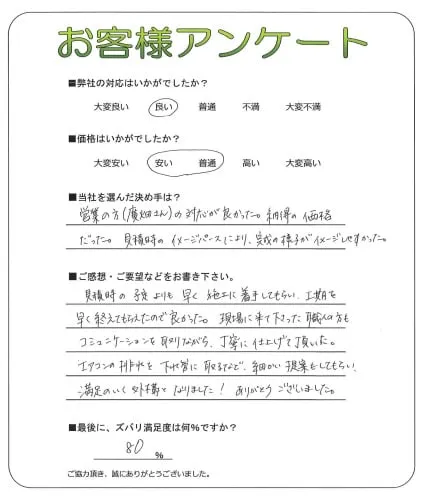 お客様アンケート
■弊社の対応はいかがでしたか？
大変良い 良い 普通 不満 大変不満
■価格はいかがでしたか？
大変安い 安い 普通 高い 大変高い
■当社を選んだ決め手は？
営業の方(廣畑さん)の対応が良かった。納得の価格
だった。見積時のイメージパースにより、完成の様子がイメージしやすかった。
■ご感想・ご要望などをお書き下さい。
見積時の予定よりも早く施工に着手してもらい、工期を
早く終えてもらえたので良かった。現場に来て下さった職人の方も
コミュニケーションを取りながら、丁寧に仕上げて頂いた。
エアコンの排水を下水管に取るなど、細かい提案もしてもらい、
満足のいく外構となりました！ありがとうございました。
■最後に、ズバリ満足度は何％ですか？
80 ％
ご協力頂き、誠にありがとうございました。